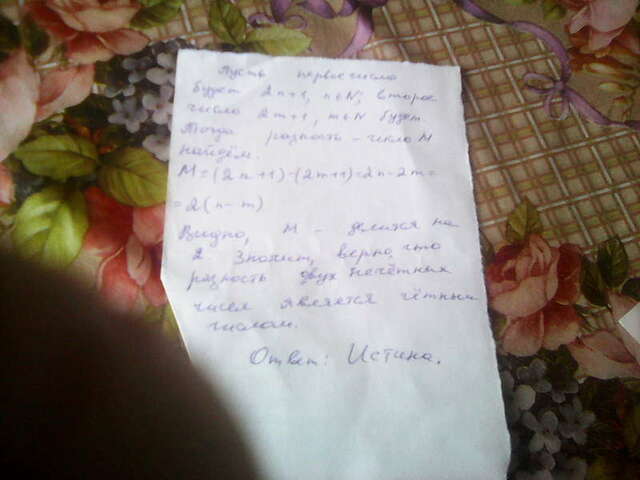 Пусть первое число
будет 2n+1, n∈N; второе
число 2m+1, m∈N будет
Тогда разность - число M
найдём.
M=(2n+1)-(2m+1)=2n-2m=
=2(n-m)
Видно, M - делится на
2 Значит, верно, что
разность двух нечётных
чисел является чётным
числом.
Ответ: Истина.